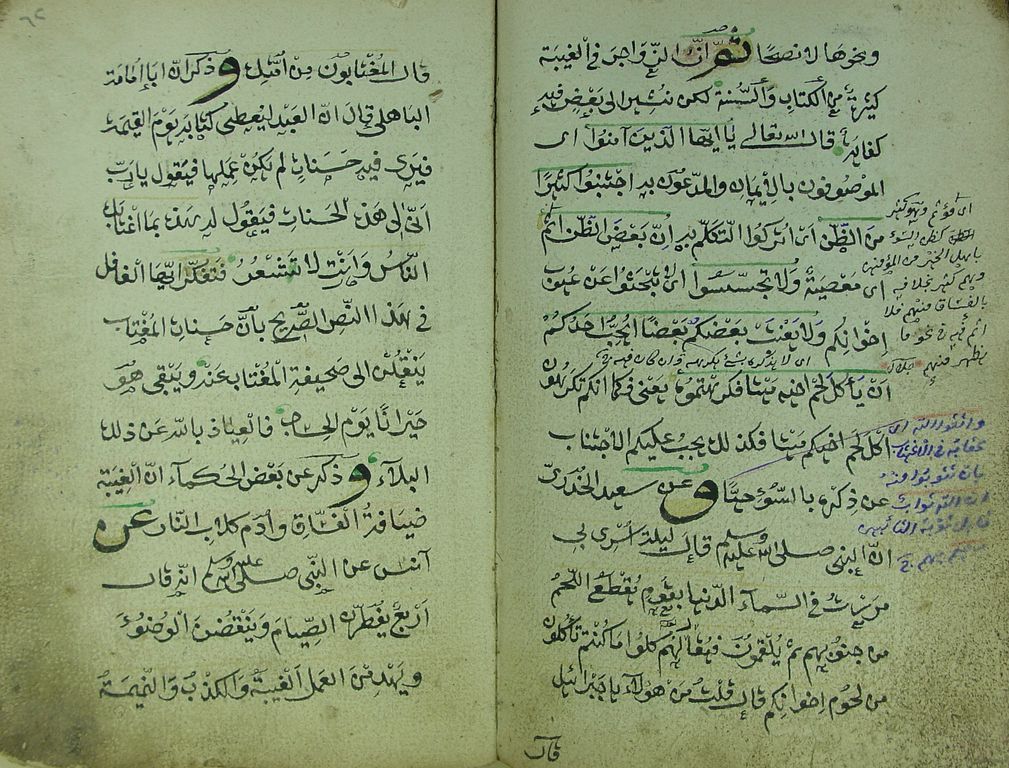 ونحوها لا نصحا ثم ان الزواجر في الغيبة
كثيرة من الكتاب والسنة لكن نشير الى بعض فيه
كفاية قال الله تعالى يا ايها الذين آمنوا اى
الموصوفون بالايمان والمدعون به اجتنبوا كثيرا
من الظن اى اتركوا التكلم به ان بعض الظن اثم
اى معصية ولا تجسسوا اى لا تبحثوا عن عيوب
اخوانكم ولا يغتب بعضكم بعضا ايحب احدكم
اى لا يذكره بشئ يكرهه وان كان فيه
ان يأكل لحم اخيه ميتا فكرهتموه يعنى فكما انكم تكرهون
اكل لحم اخيكم ميتا فكذلك يجب عليكم الاجتناب
عن ذكره بالسوء حيا وعن سعيد الخدرى
ان النبى صلى الله عليه وسلم قال ليلة اسرى بى
مررت في السماء الدنيا بقوم يقطع اللحم
من جنوبهم ثم يلقمون فيقال لهم كلوا ما كنتم تأكلون
من لحوم اخوانكم قال قلت من هؤلاء يا جبرائيل
قال
اى مؤثم وهو كثير
كظن السوء
باهل الخير من المؤمنين
وهم كثير بخلافه
بالفساق منهم فلا
اثم فيه في نحو ما
يظهر منهم جلالين
واتقوا الله اى
عقابه في الاغتياب
بان تتوبوا منه
ان الله تواب
قابل توبة التائبين
قال المغتابون من امتك وذكر ان ابا امامة
الباهلى قال ان العبد ليعطى كتابه يوم القيمة
فيرى فيه حسنات لم يكن عملها فيقول يا رب
انى لى هذه الحسنات فيقول له هذه بما اغتاب
الناس وانت لا تشعر فتفكر ايها الغافل
في هذا النص الصريح بان حسنات المغتاب
ينقلن الى صحيفة المغتاب عنه ويبقى هو
حيرانا يوم الحساب فالعياذ بالله عن ذلك
البلاء وذكر عن بعض الحكماء ان الغيبة
ضيافة الفساق وادم كلاب النار عن
انس عن النبى صلى الله عليه وسلم انه قال
اربع يفطرن الصيام وينقضن الوضوء
ويهدمن العمل الغيبة والكذب والنميمة